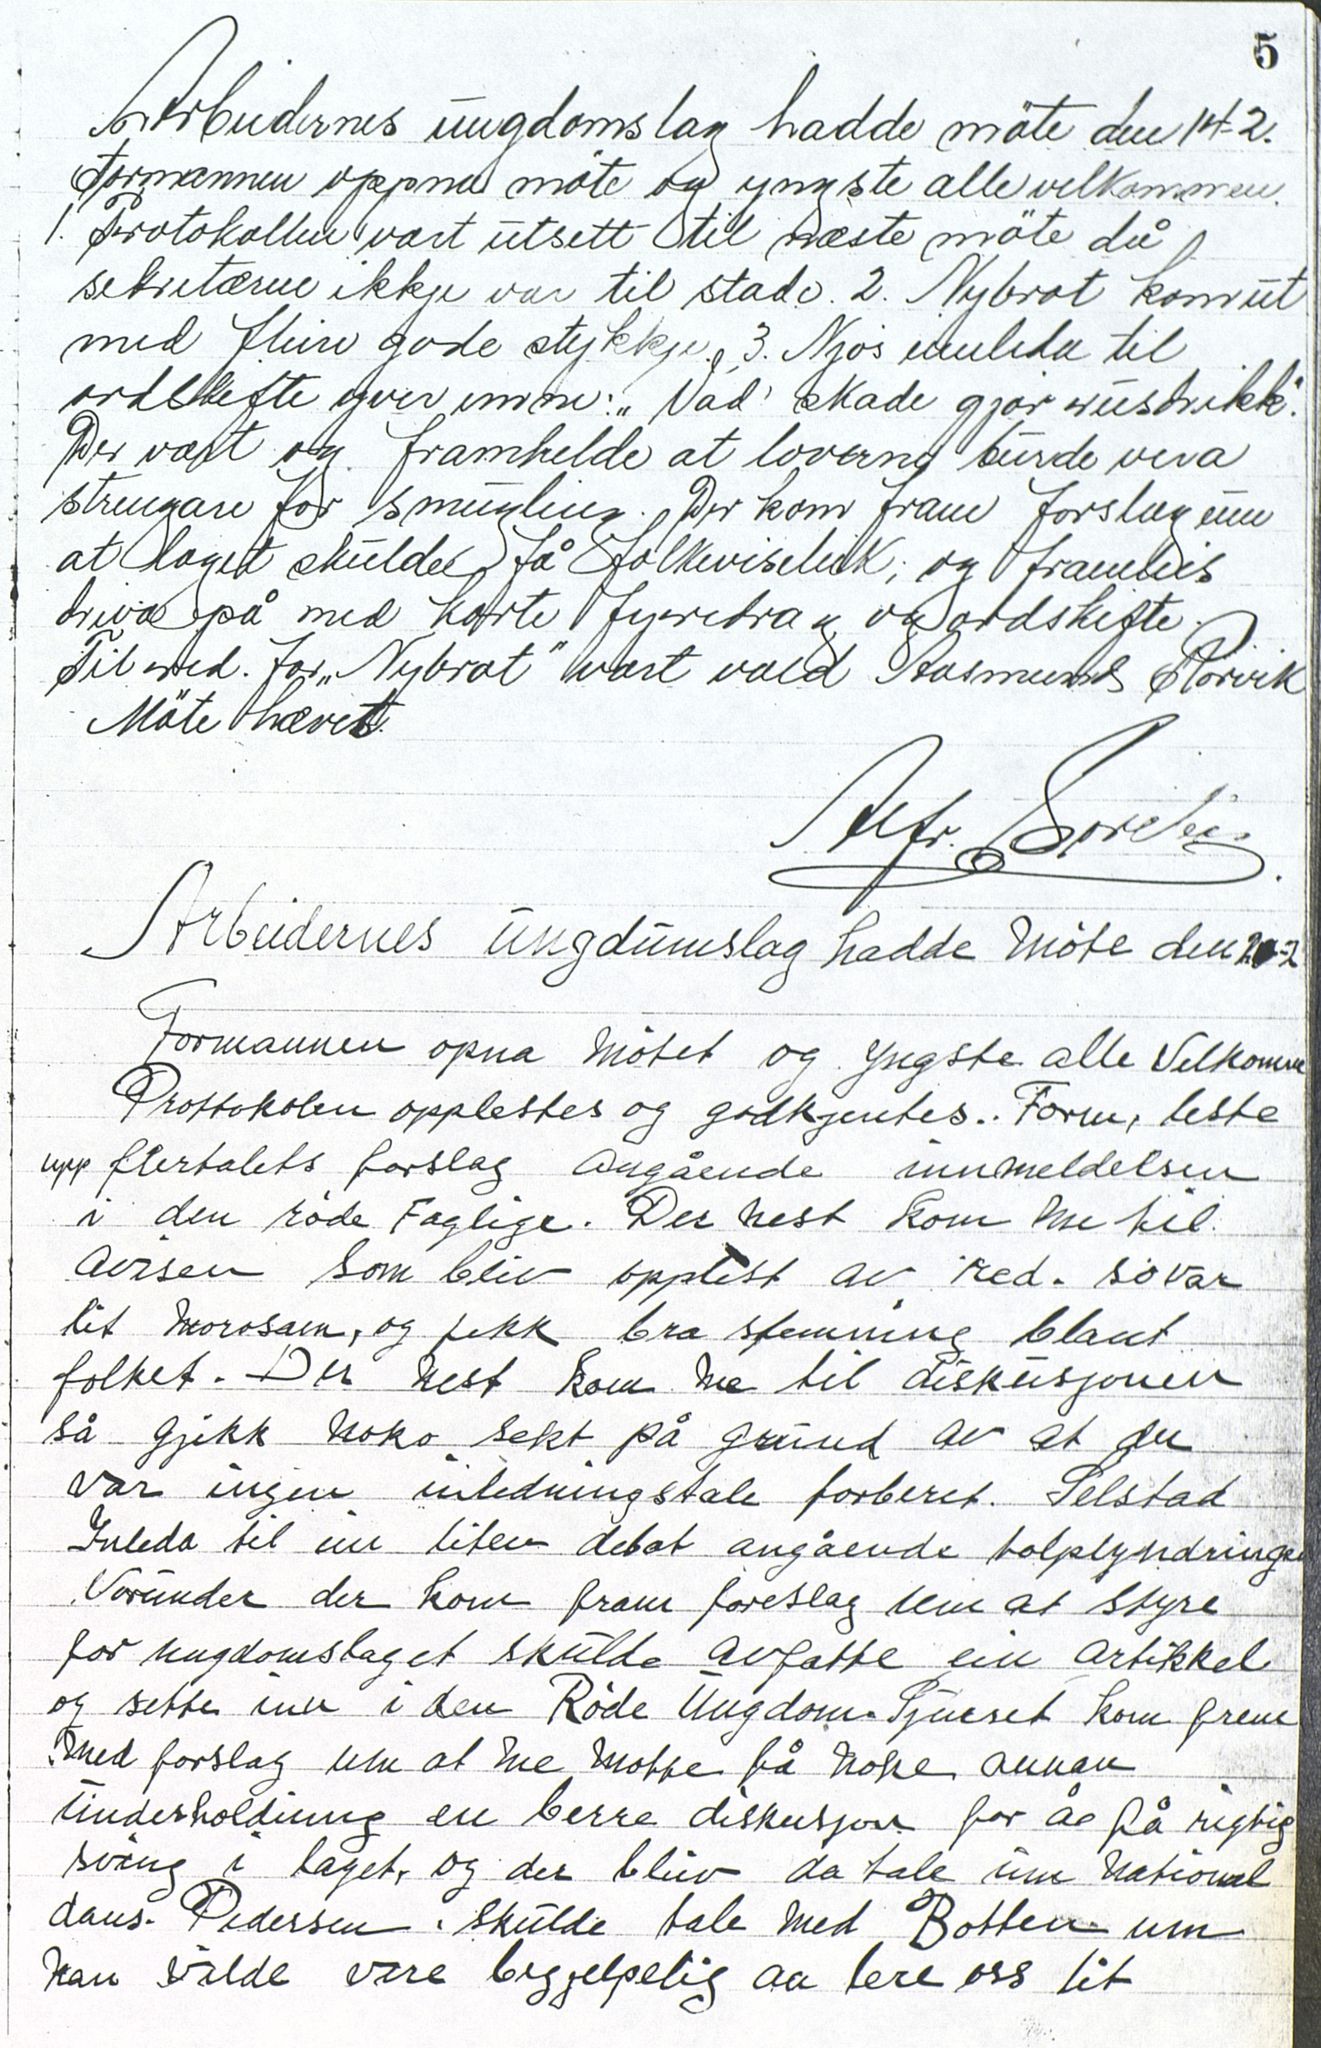 5
Arbeidernes ungdomslag hadde möte den 14-2.
Formannen oppna möte og yngste alle velkommen.
1. Protokollen vart utsett til næste möte då
sekretæren ikkje var til stade. 2. Nybrot kom ut
med fleire gode stykkje. 3. Njös innleda til
ordskifte yver emne: „Vad skade gjör rusdrikk".
Der vart og framhelde at loverne burde vera
strengare for smugling. Der kom fram forslag um
at laget skulde få folkeviseleik, og framleis
driva på med korte fyredrag og ordskifte.
Til red. for „Nybrot" vart vald Aasmund
Möte hævet.
Alfr.
Arbeidernes Ungdumslag hadde Möte den
Formannen opna Mötet og Yngste alle Velkomne
Prottokolen opplestes og godkjentes.. Form, leste
upp flertalets forslag angående innmeldelsen
i den röde Faglige. Der nest kom me til
avisen som bleiv opplest av red. so var
lit Morosam, og fekk bra stemning blant
folket. Der nest kom me til diskusjonen
så gjikk noko sekt på grund av at der
var ingen inledningstale forberet. Selstad
Inleda til ein liten debat angående tolplyndringen
Vorunder der kom fram foreslag um at styre
for ungdomslaget skulde avfatte ein artikkel
og sette inn i den Röde Ungdom. kom frem
med forslag um at me motte få noke annan
Underholdning en berre diskusjon for åe få rigtig
sving i laget, og der bleiv da tale um National
dans. Pedersen skulde tale med Botten um
han vilde vere behjelpelig aa lere oss lit